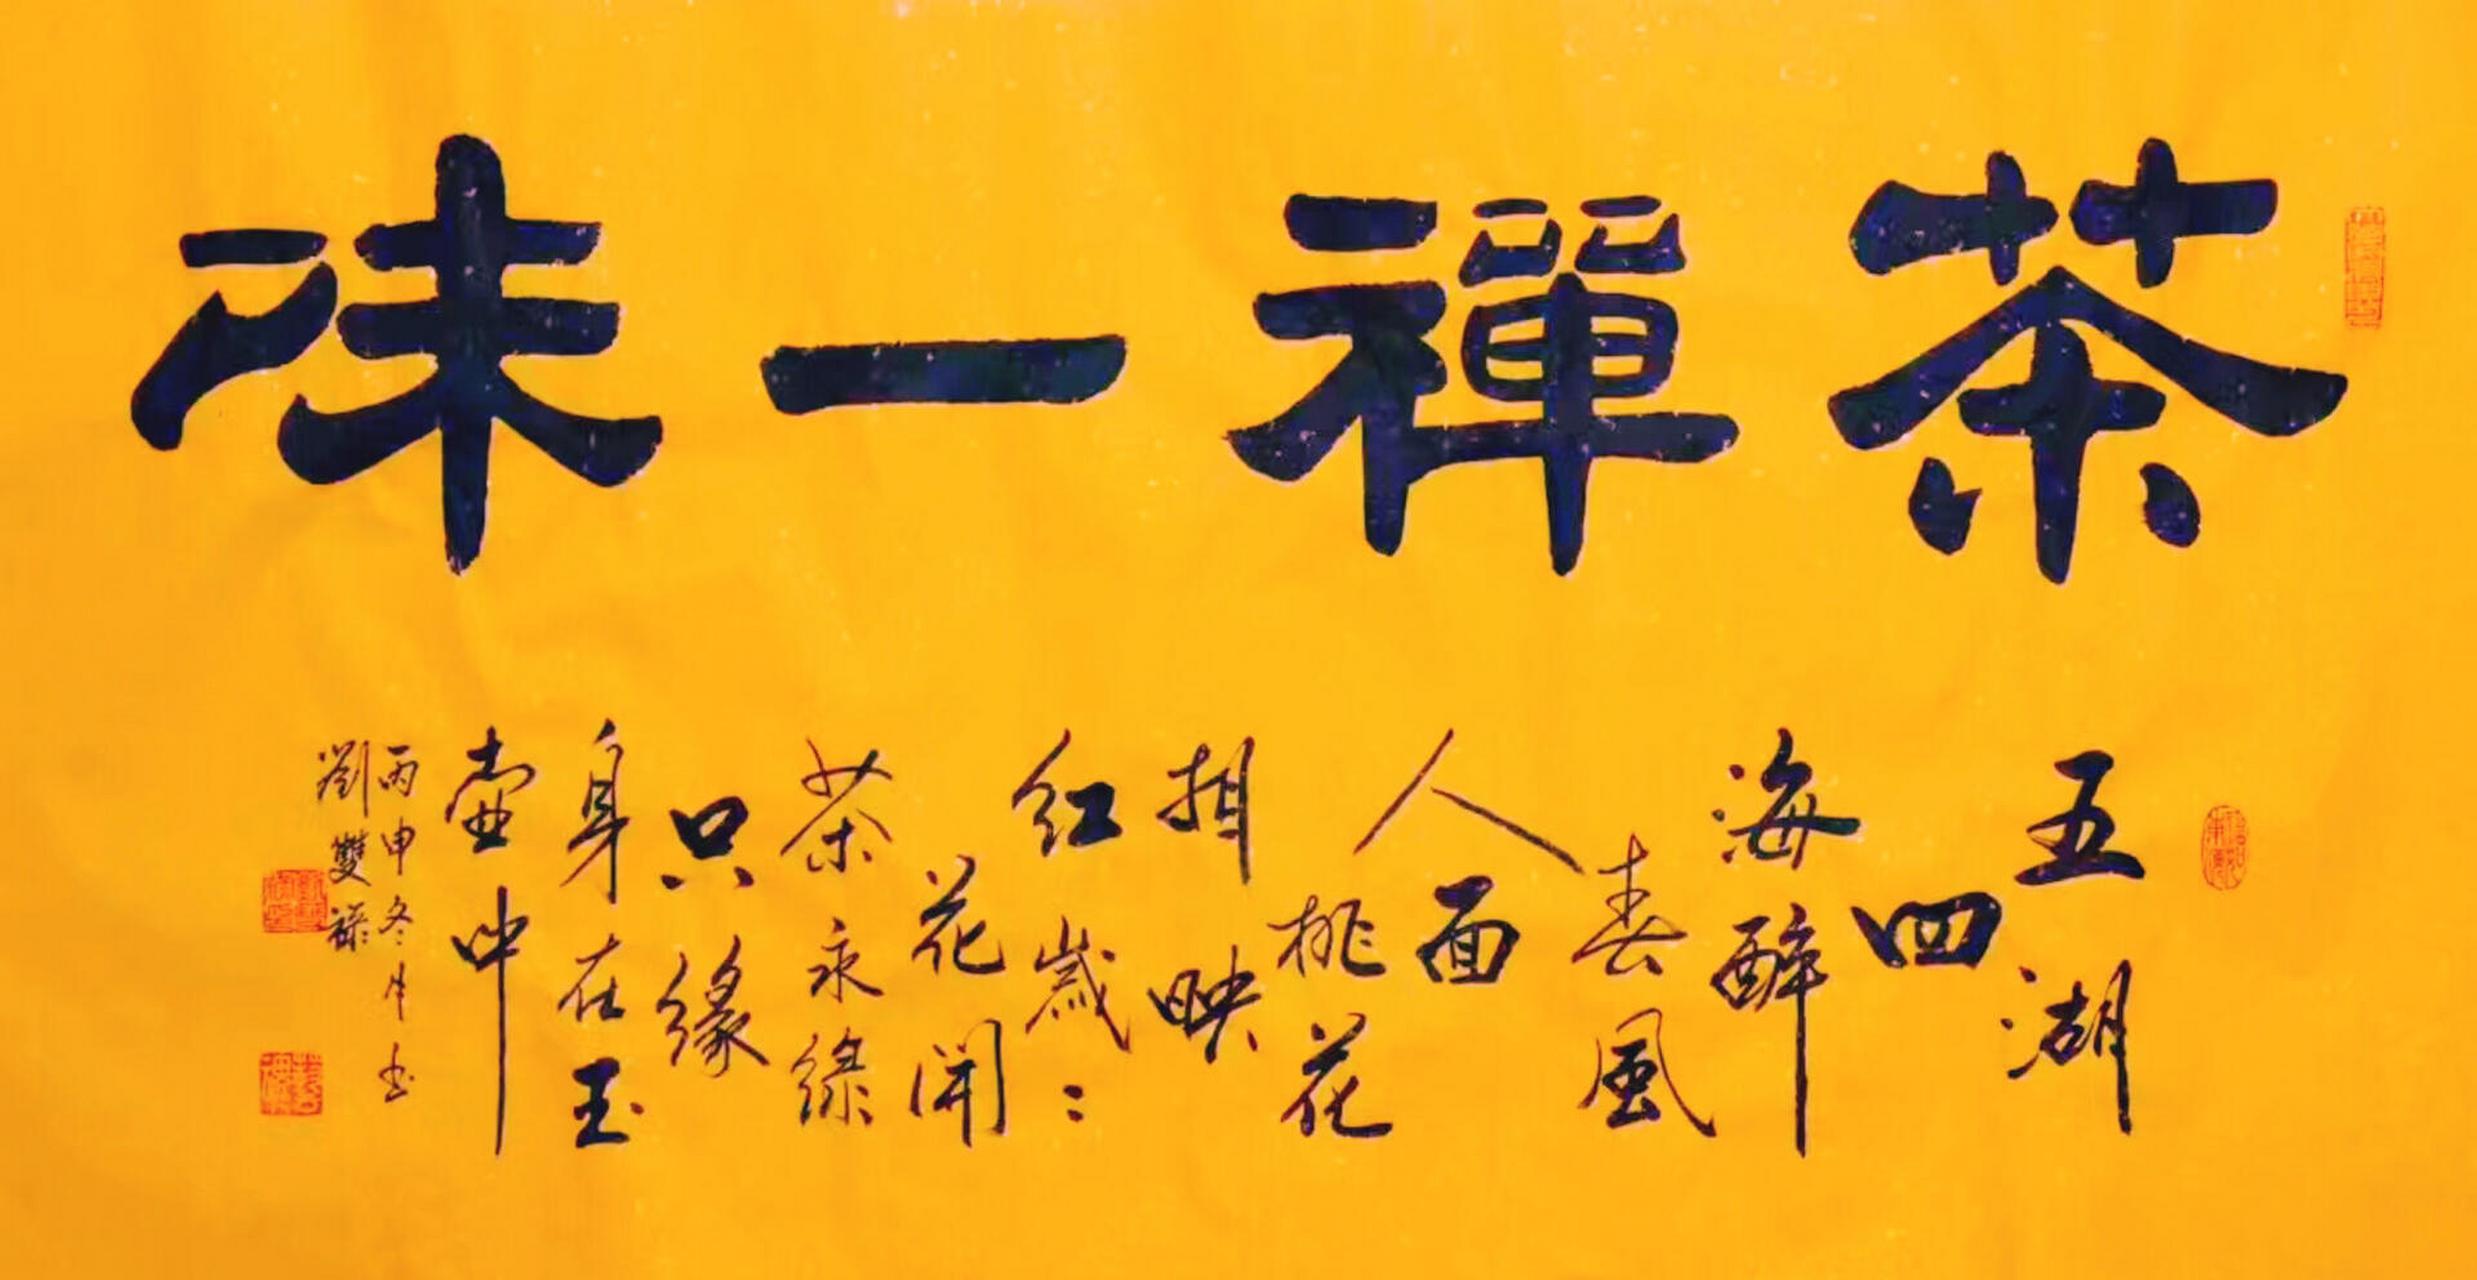 茶禪一味
五湖
四
海醉
春風
人面
桃花
相映
紅歲：
花開
茶永綠
只緣
身在玉
壺中
丙申冬月書
劉雙祿